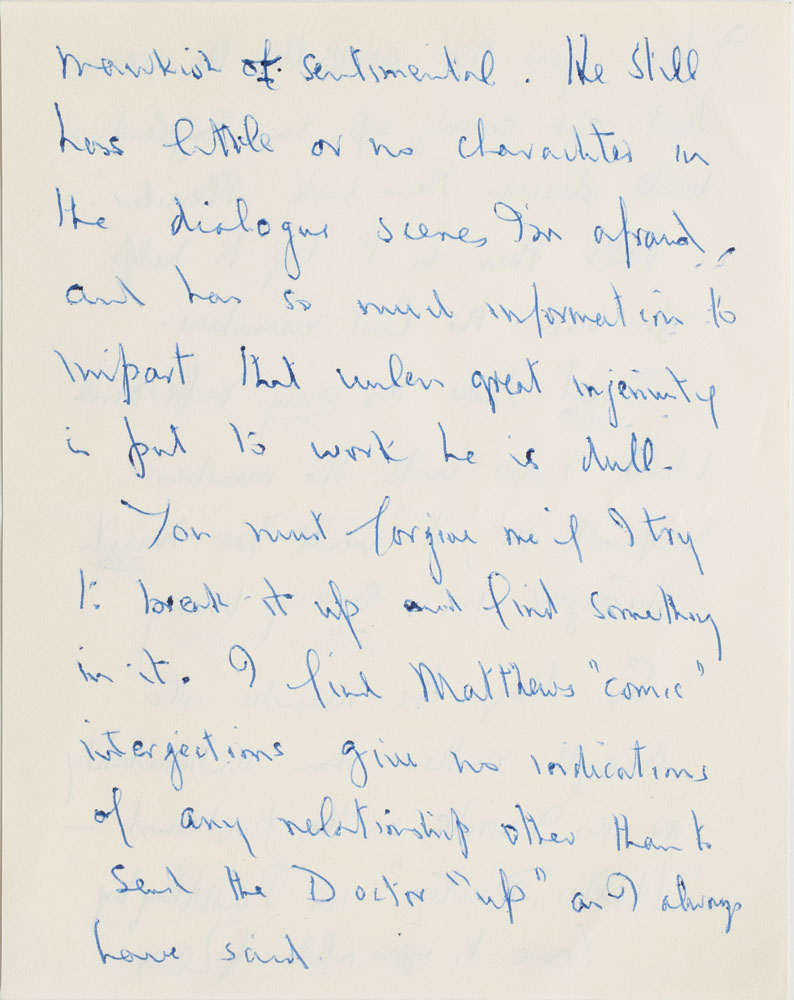 mawkish or sentimental. He still
has little or no character in
the dialogue scenes I'm afraid,
and has so much information to
impart that unless great ingenuity
is put to work he is dull.
You must forgive me if I try
to break it up and find something
in it. I find Matthews "comic"
interjections give no indications
of any relationship other than to
send the Doctor "up" as I always
have said.